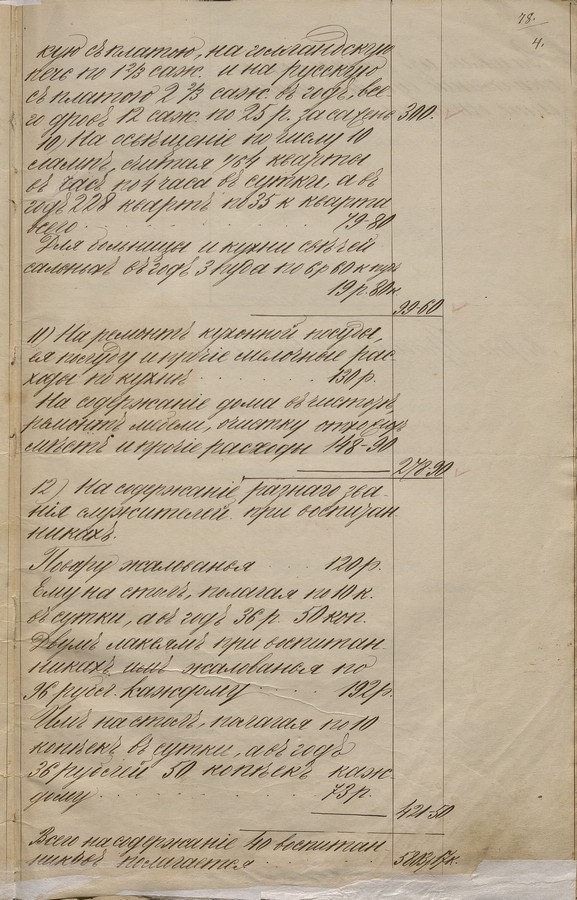 78.
4.
кую съ платою, на голландскую
печь по 1 2/3 саж. и на русскую
съ платою 2 2/3 саж. въ годъ, все-
го дровъ 12 саж. по 25 р. за сажень 300.
10) На освѣщеніе по числу 10
лампъ, считая 1/64 кварты
въ часъ по 4 часа въ сутки, а въ
годъ 228 квартъ по 35 к кварта
всего 79-80
Для больницы и кухни свѣчей
сальныхъ въ годъ 3 пуда по 6 р 60 к пудъ
19 р. 80 к
99-60
11) На ремонтъ кухонной посуды,
посуду и прочіе мелочные рас-
ходы по кухнѣ 130 р.
На содержаніе дома въ чистотѣ,
ремонтъ мебели, очистку отхожихъ
мѣстъ и прочіе расходы 148-90
278-90
12) На содержаніе разнаго зва-
нія служителей при воспитан-
никахъ.
Повару жалованья 120 р.
Ему на столъ, полагая по 10 к.
въ сутки, а въ годъ 36 р. 50 коп.
Двумъ лакеямъ при воспитан-
никахъ имъ жалованья по
96 рубл. каждому 192 р.
Имъ на столъ, полагая по 10
копѣекъ въ сутки, а въ годъ
36 рублей 50 копѣекъ каж-
дому 73 р.
421-50
Всего на содержаніе 40 воспитан
никовъ полагается